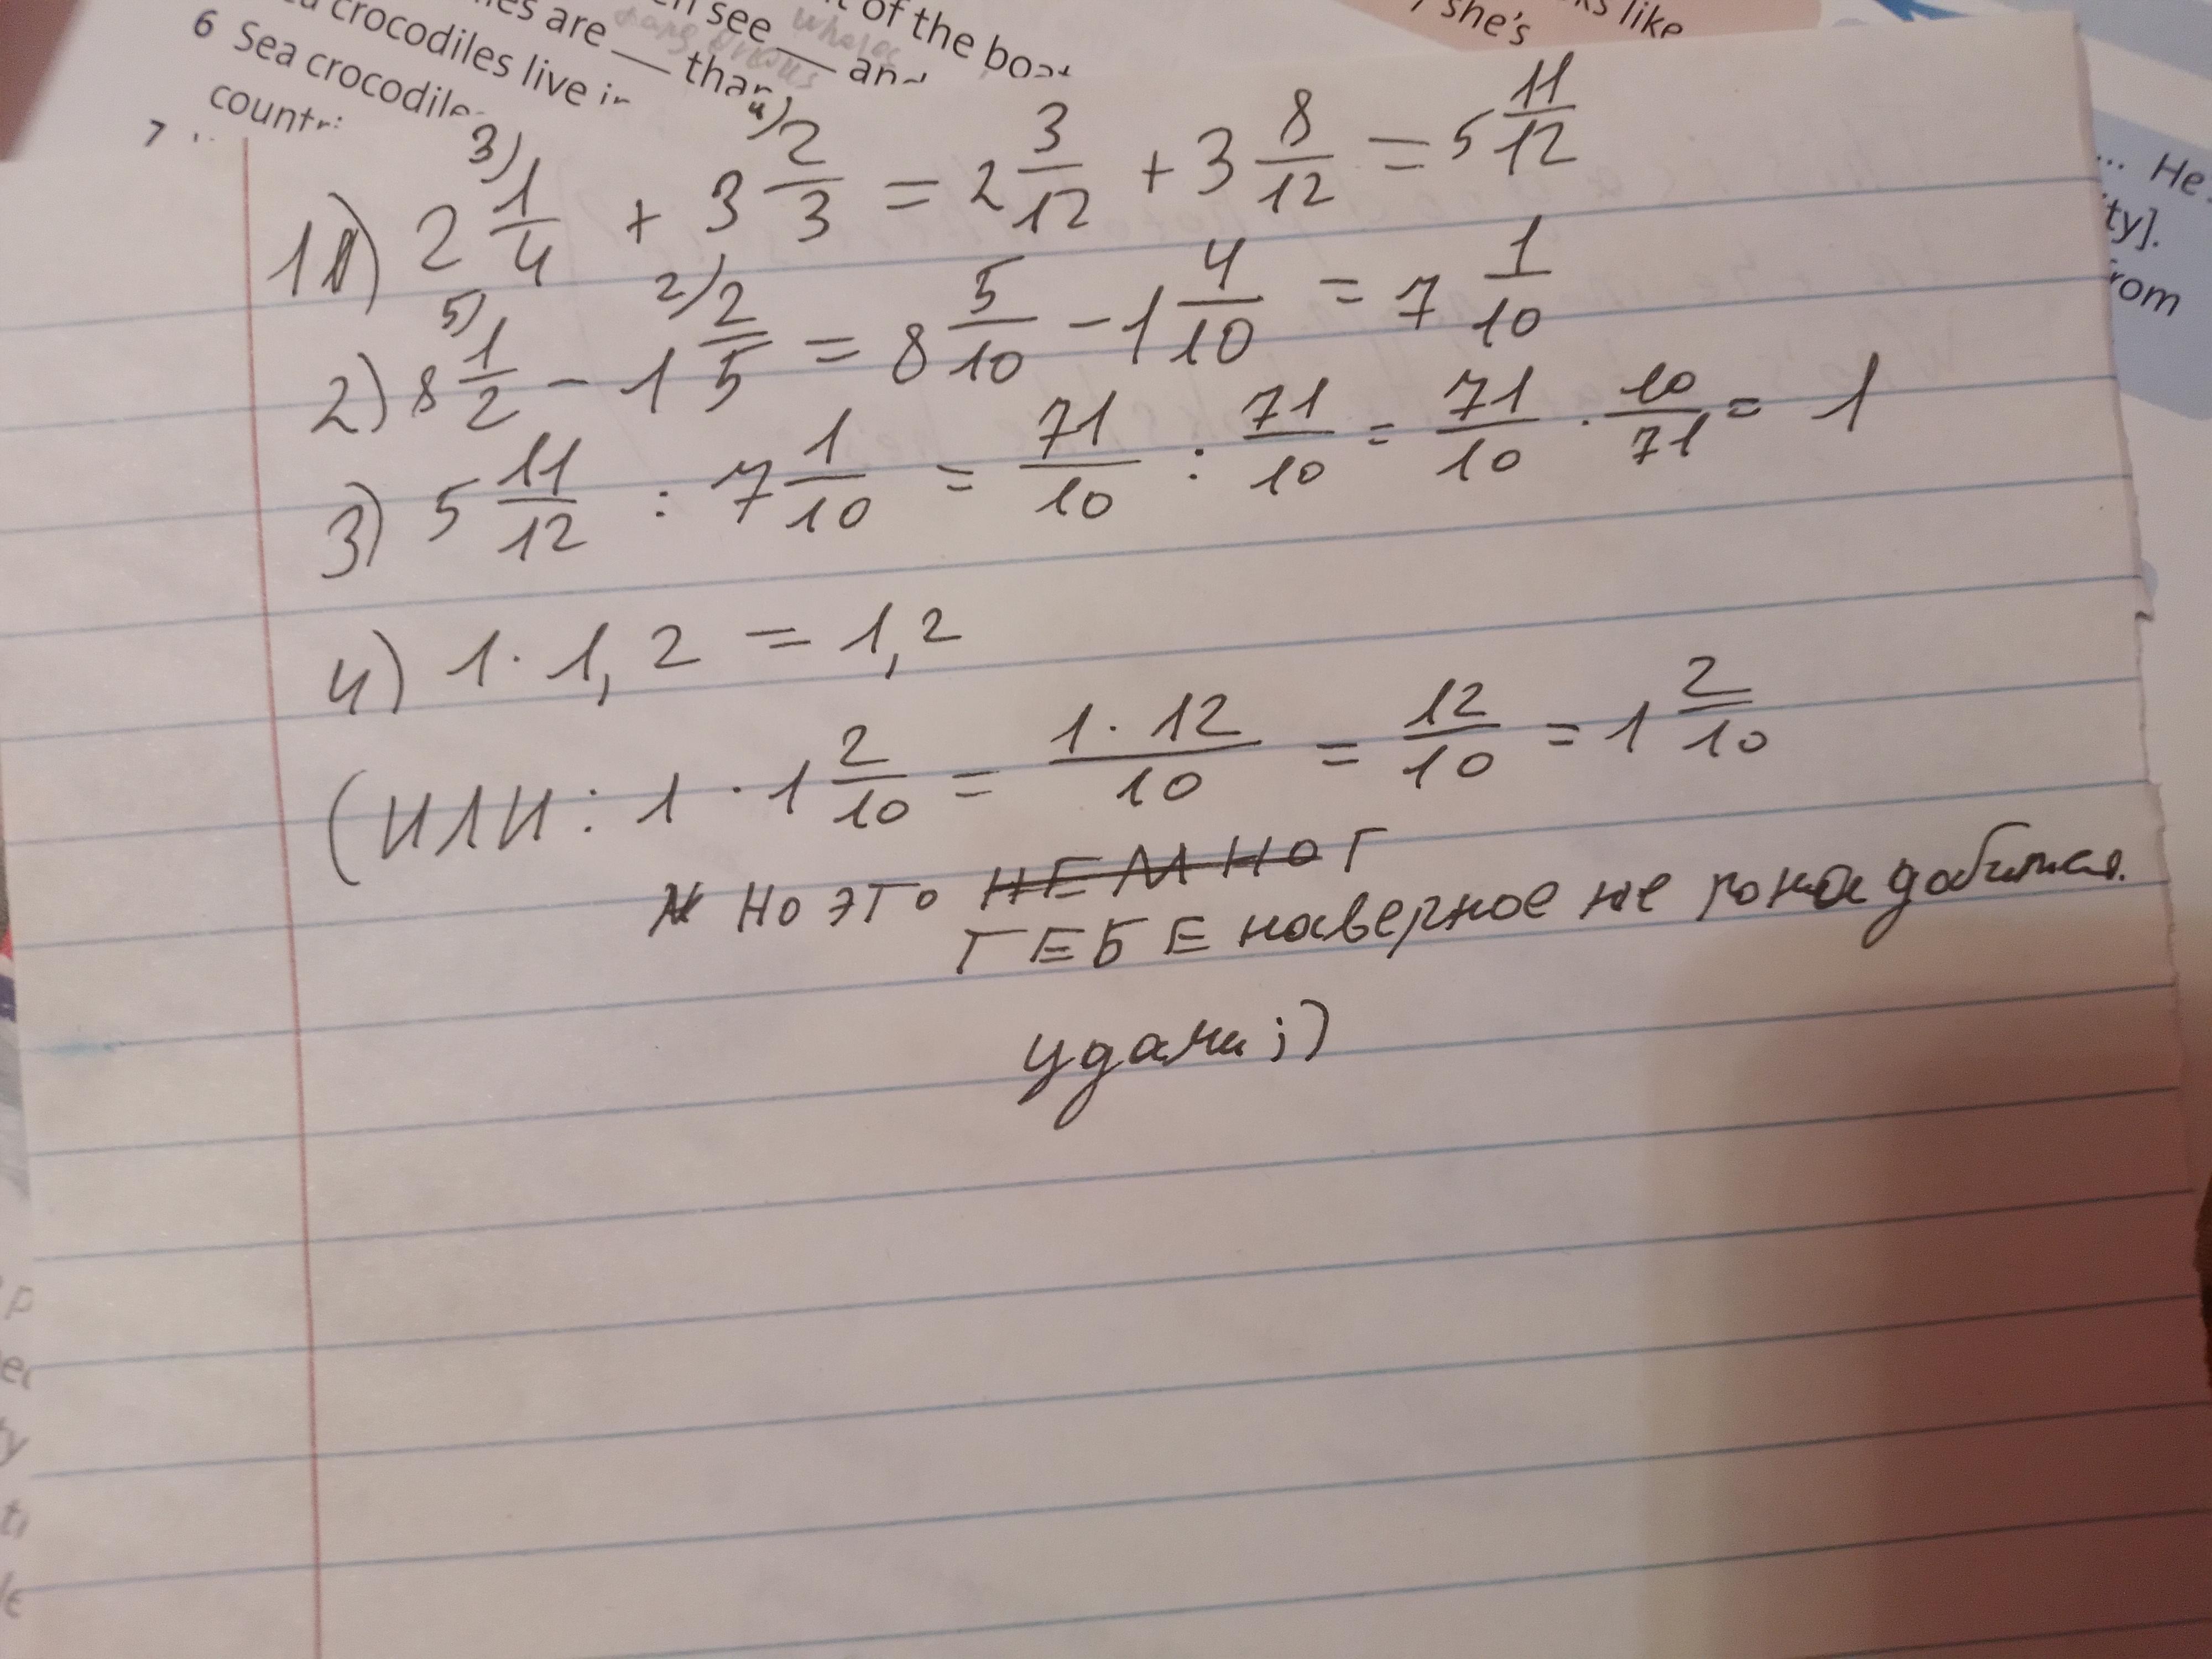 of the boat
en see ___ and
whales
es are ___ than
dangerous
crocodiles live in
6 Sea crocodile
countri
7
ks like
she's
... He
ty].
rom
1) 2 1/4 + 3 2/3 = 2 3/12 + 3 8/12 = 5 11/12
2) 8 1/2 - 1 2/5 = 8 5/10 - 1 4/10 = 7 1/10
3) 5 11/12 : 7 1/10 = 71/10 : 71/10 = 71/10 · 10/71 = 1
4) 1 · 1,2 = 1,2
(ИЛИ: 1 · 1 2/10 = 1·12/10 = 12/10 = 1 2/10
НО ЭТО НЕМНОГ
ТЕБЕ наверное не понадобится.
удачи ;)